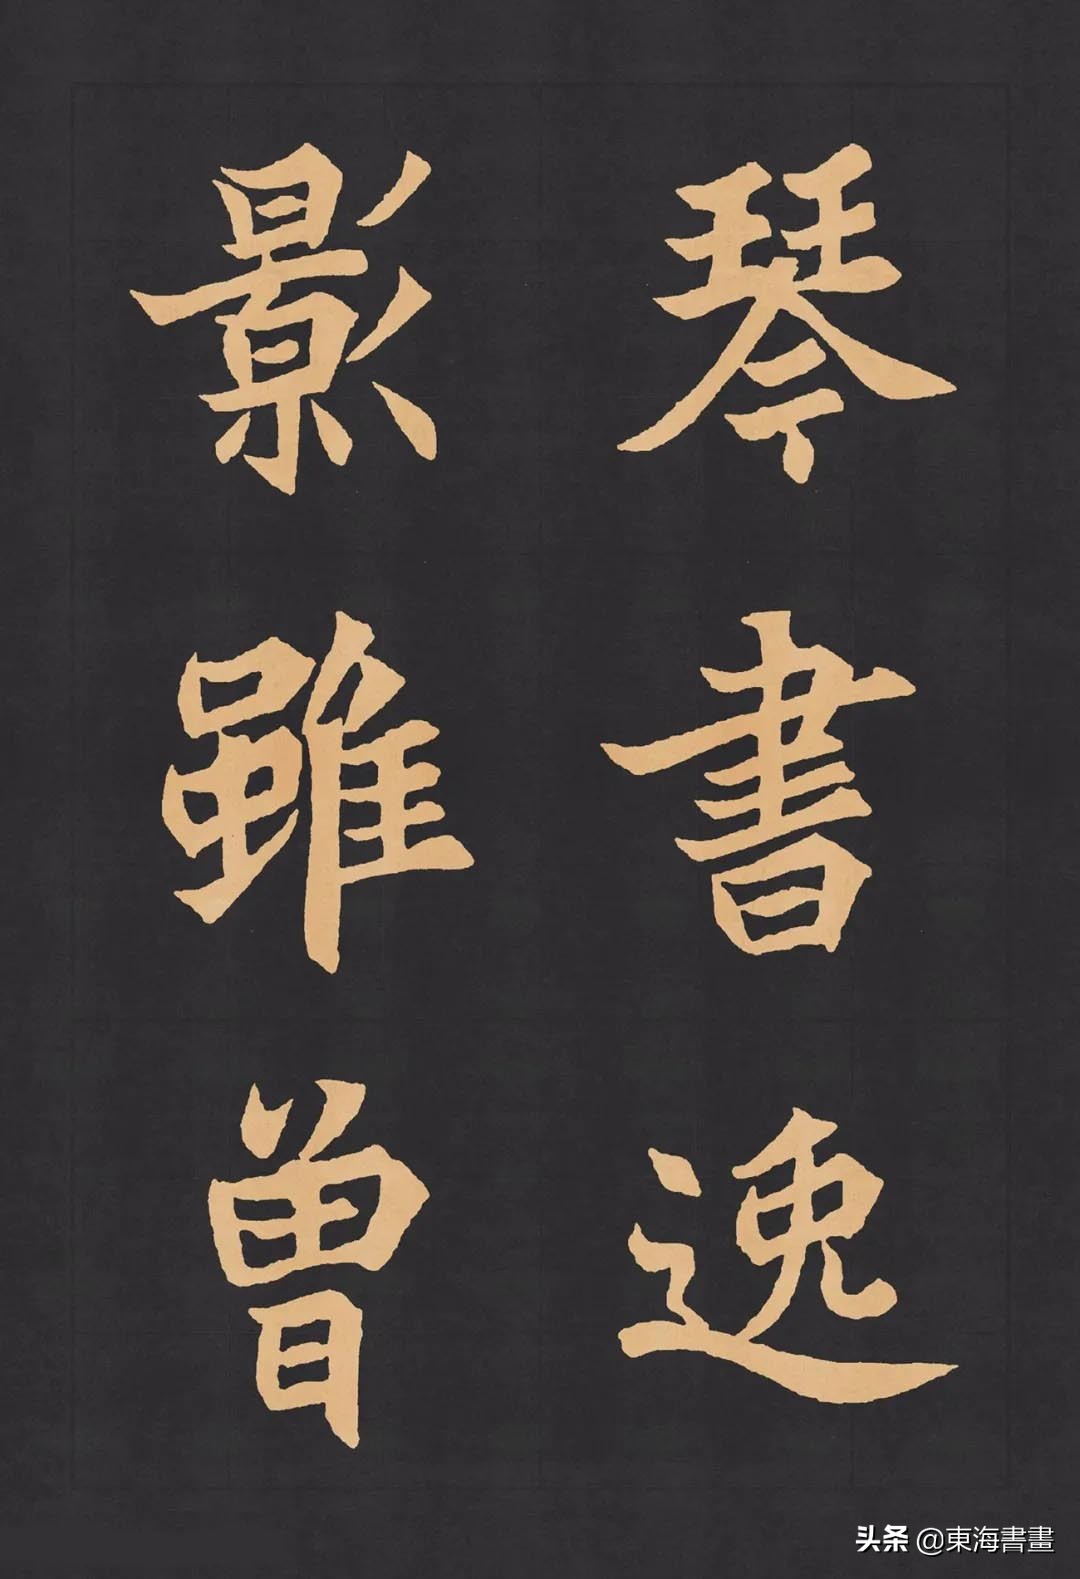 琴書逸
影雖曾
头条 @東海書畫